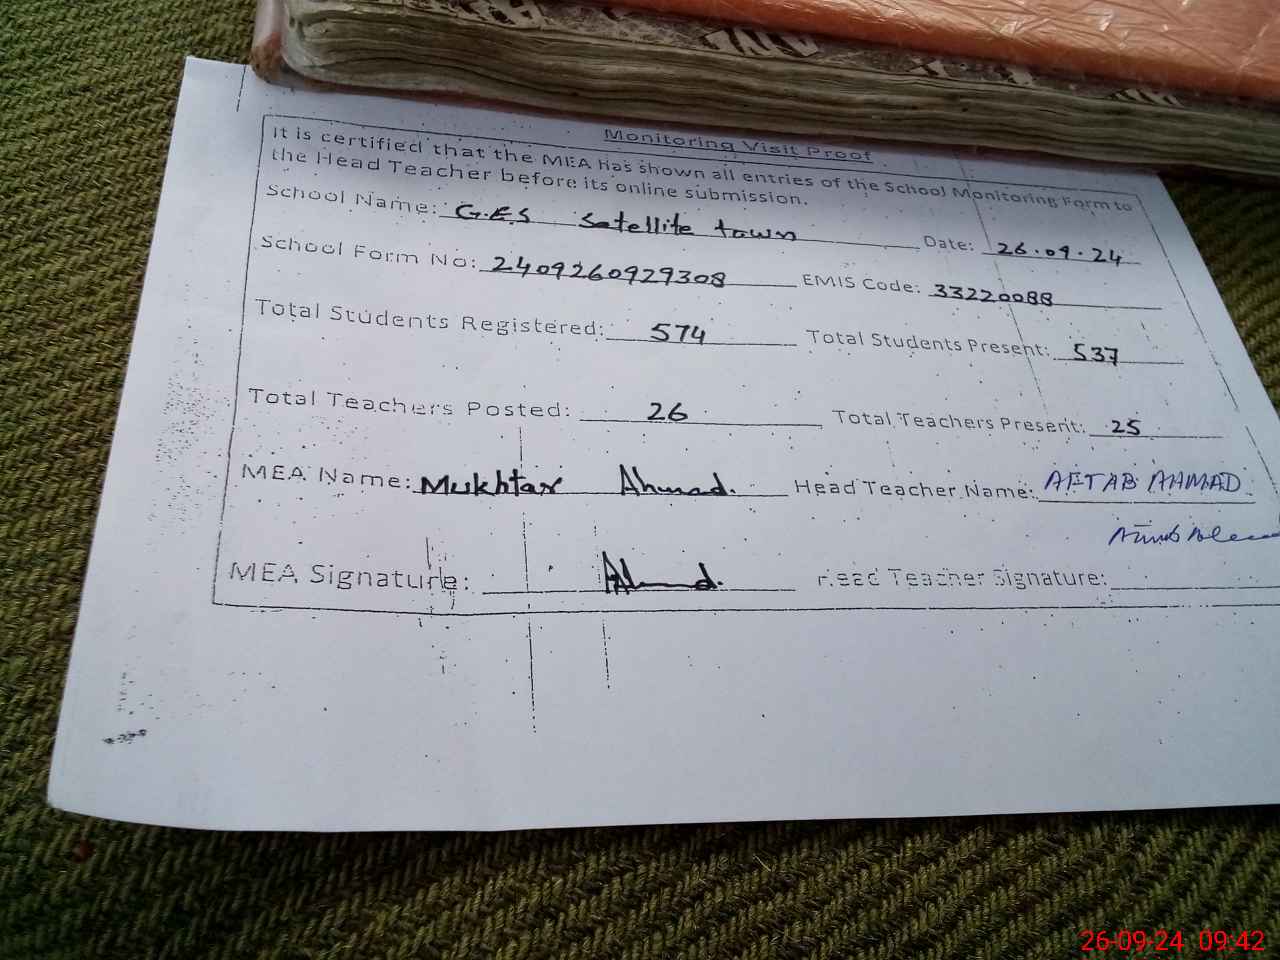 Monitoring Visit Proof
It is certified that the MEA has shown all entries of the School Monitoring Form to
the Head Teacher before its online submission.
School Name: G.E.S Satellite town Date: 26.09.24
School Form No: 2409260929308 EMIS Code: 33220088
Total Students Registered: 574 Total Students Present: 537
Total Teachers Posted: 26 Total Teachers Present: 25
MEA Name: Mukhtar Ahmad. Head Teacher Name: AFTAB AHMAD
MEA Signature: Ahmad. Head Teacher Signature:
26-09-24 09:42